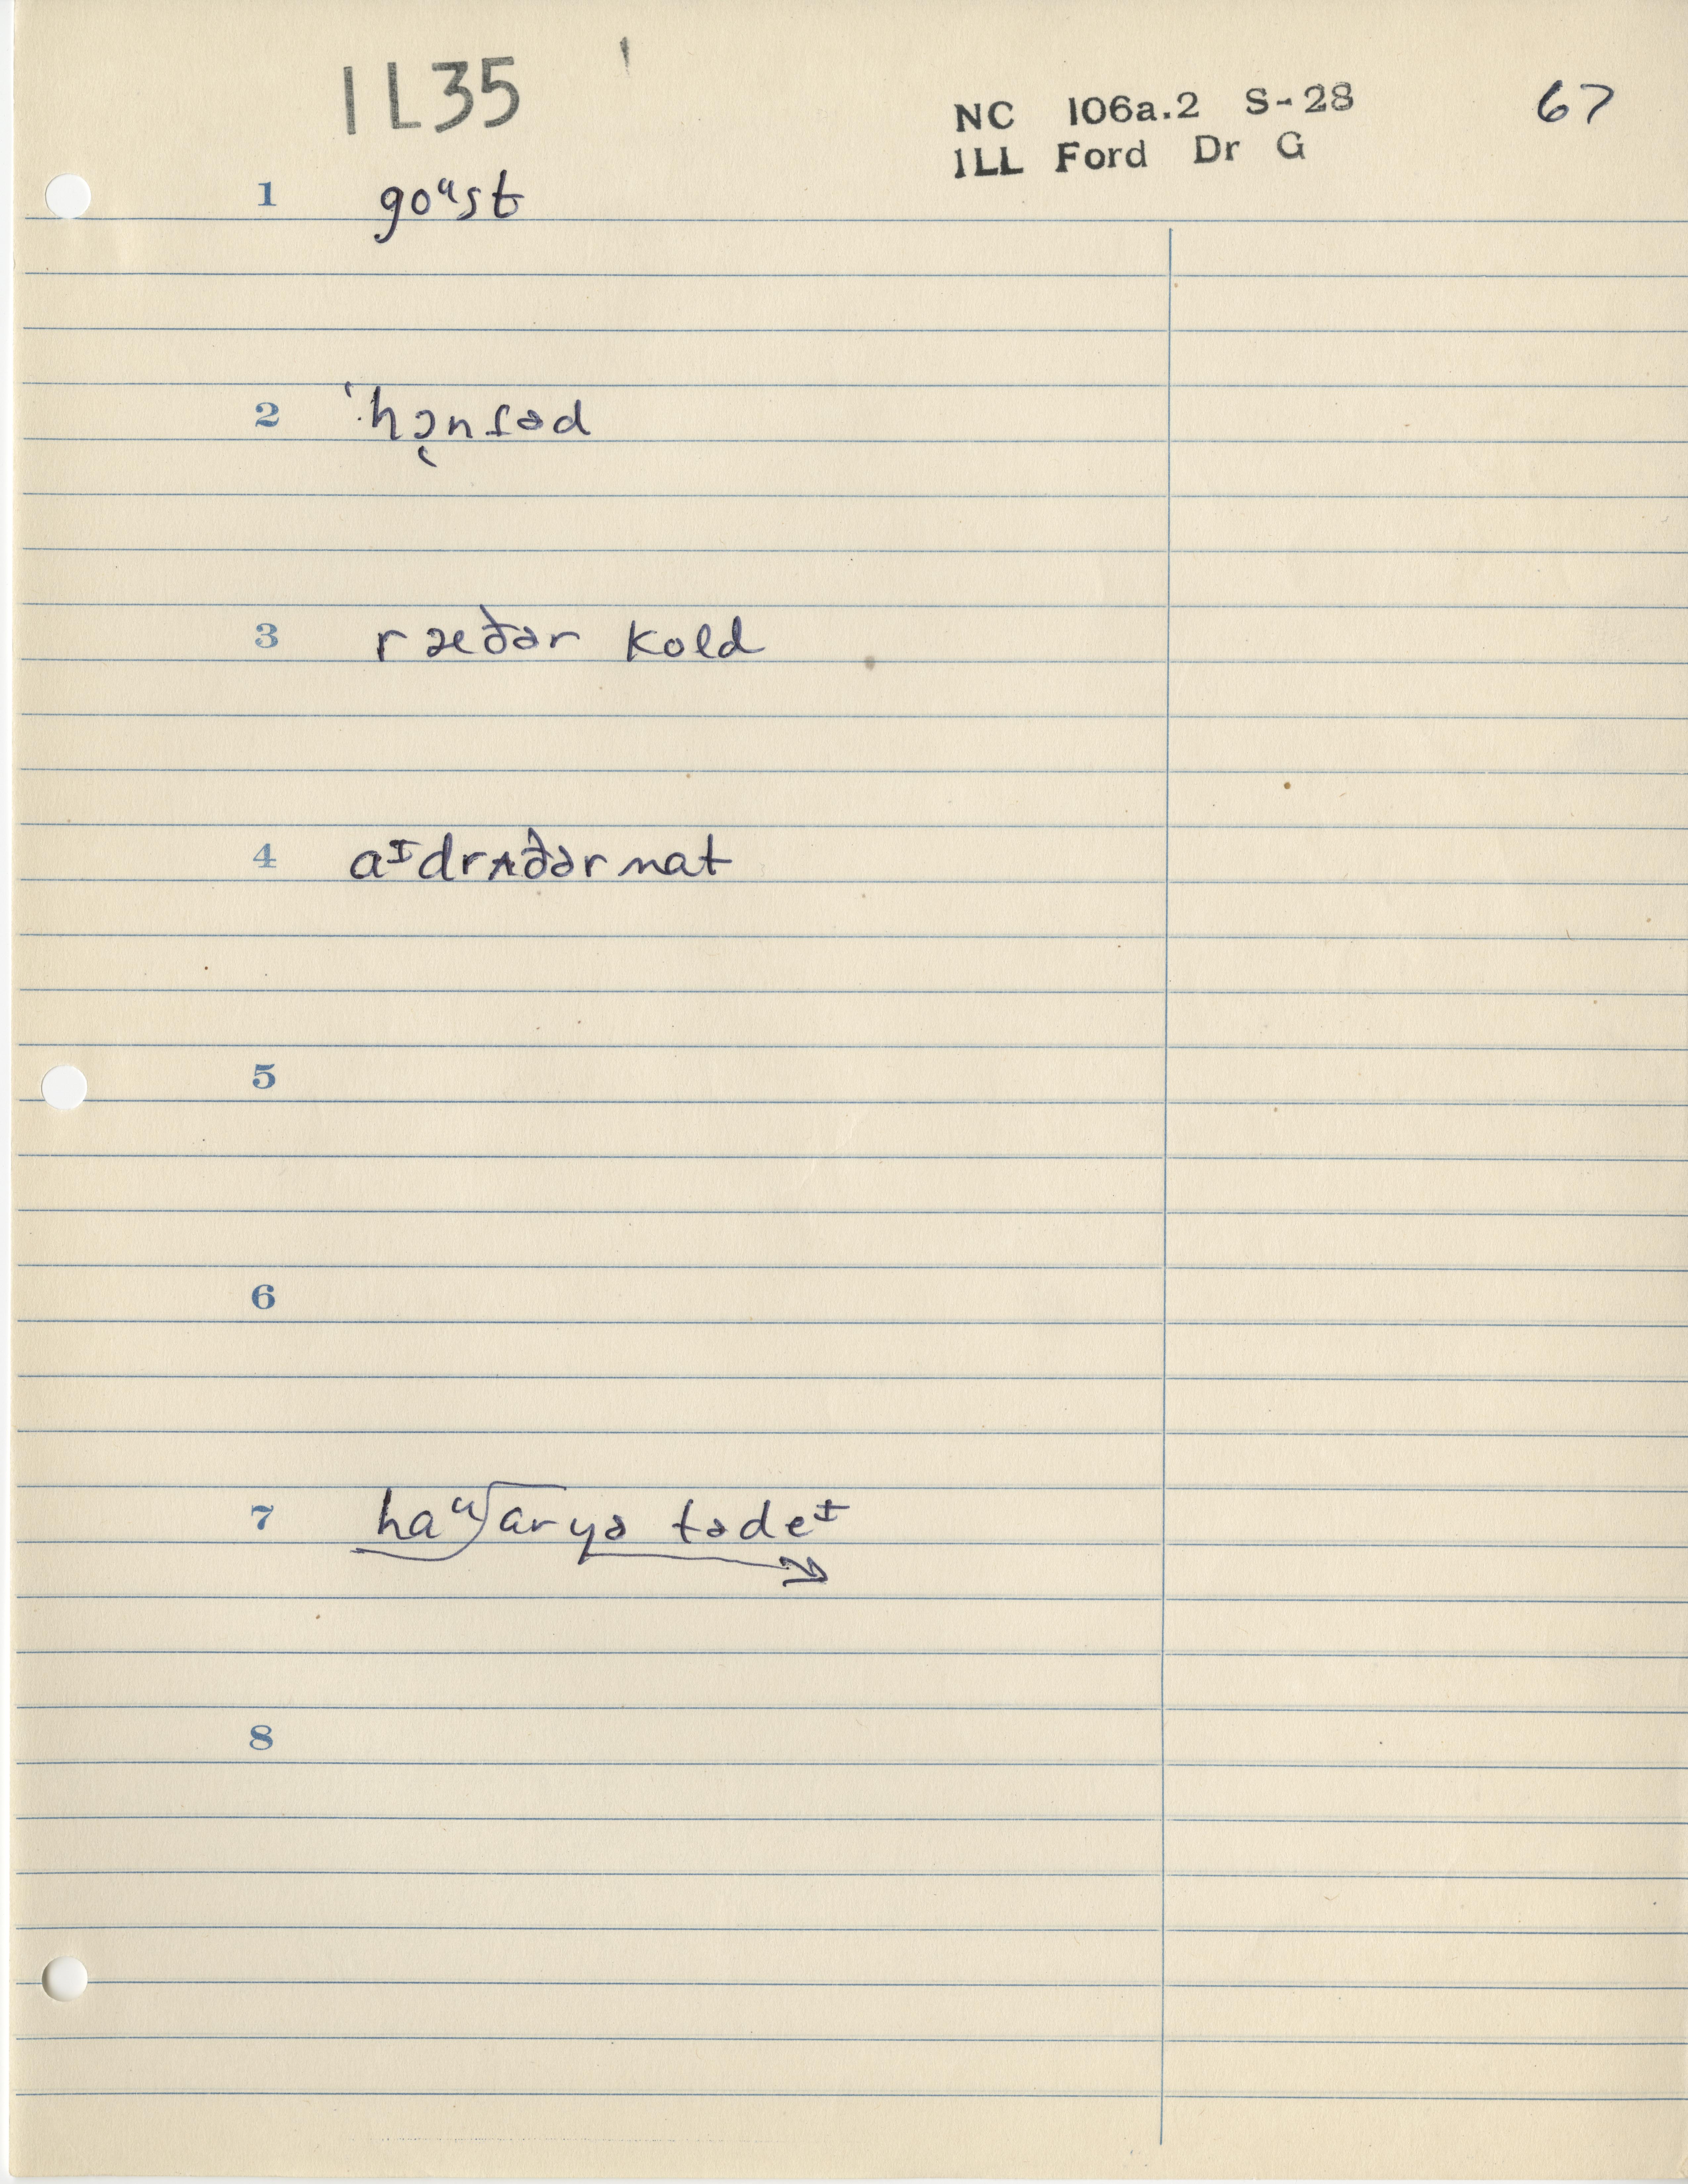 1L35
NC 106a.2 S-28 67
1LL Ford Dr G
1 goᵘst
2 ˈhɔ̜nṣəd
3 ræðər kold
4 aᶦdrʌðər nat
5
6
7 haᵘ aryə tədeᶦ
8